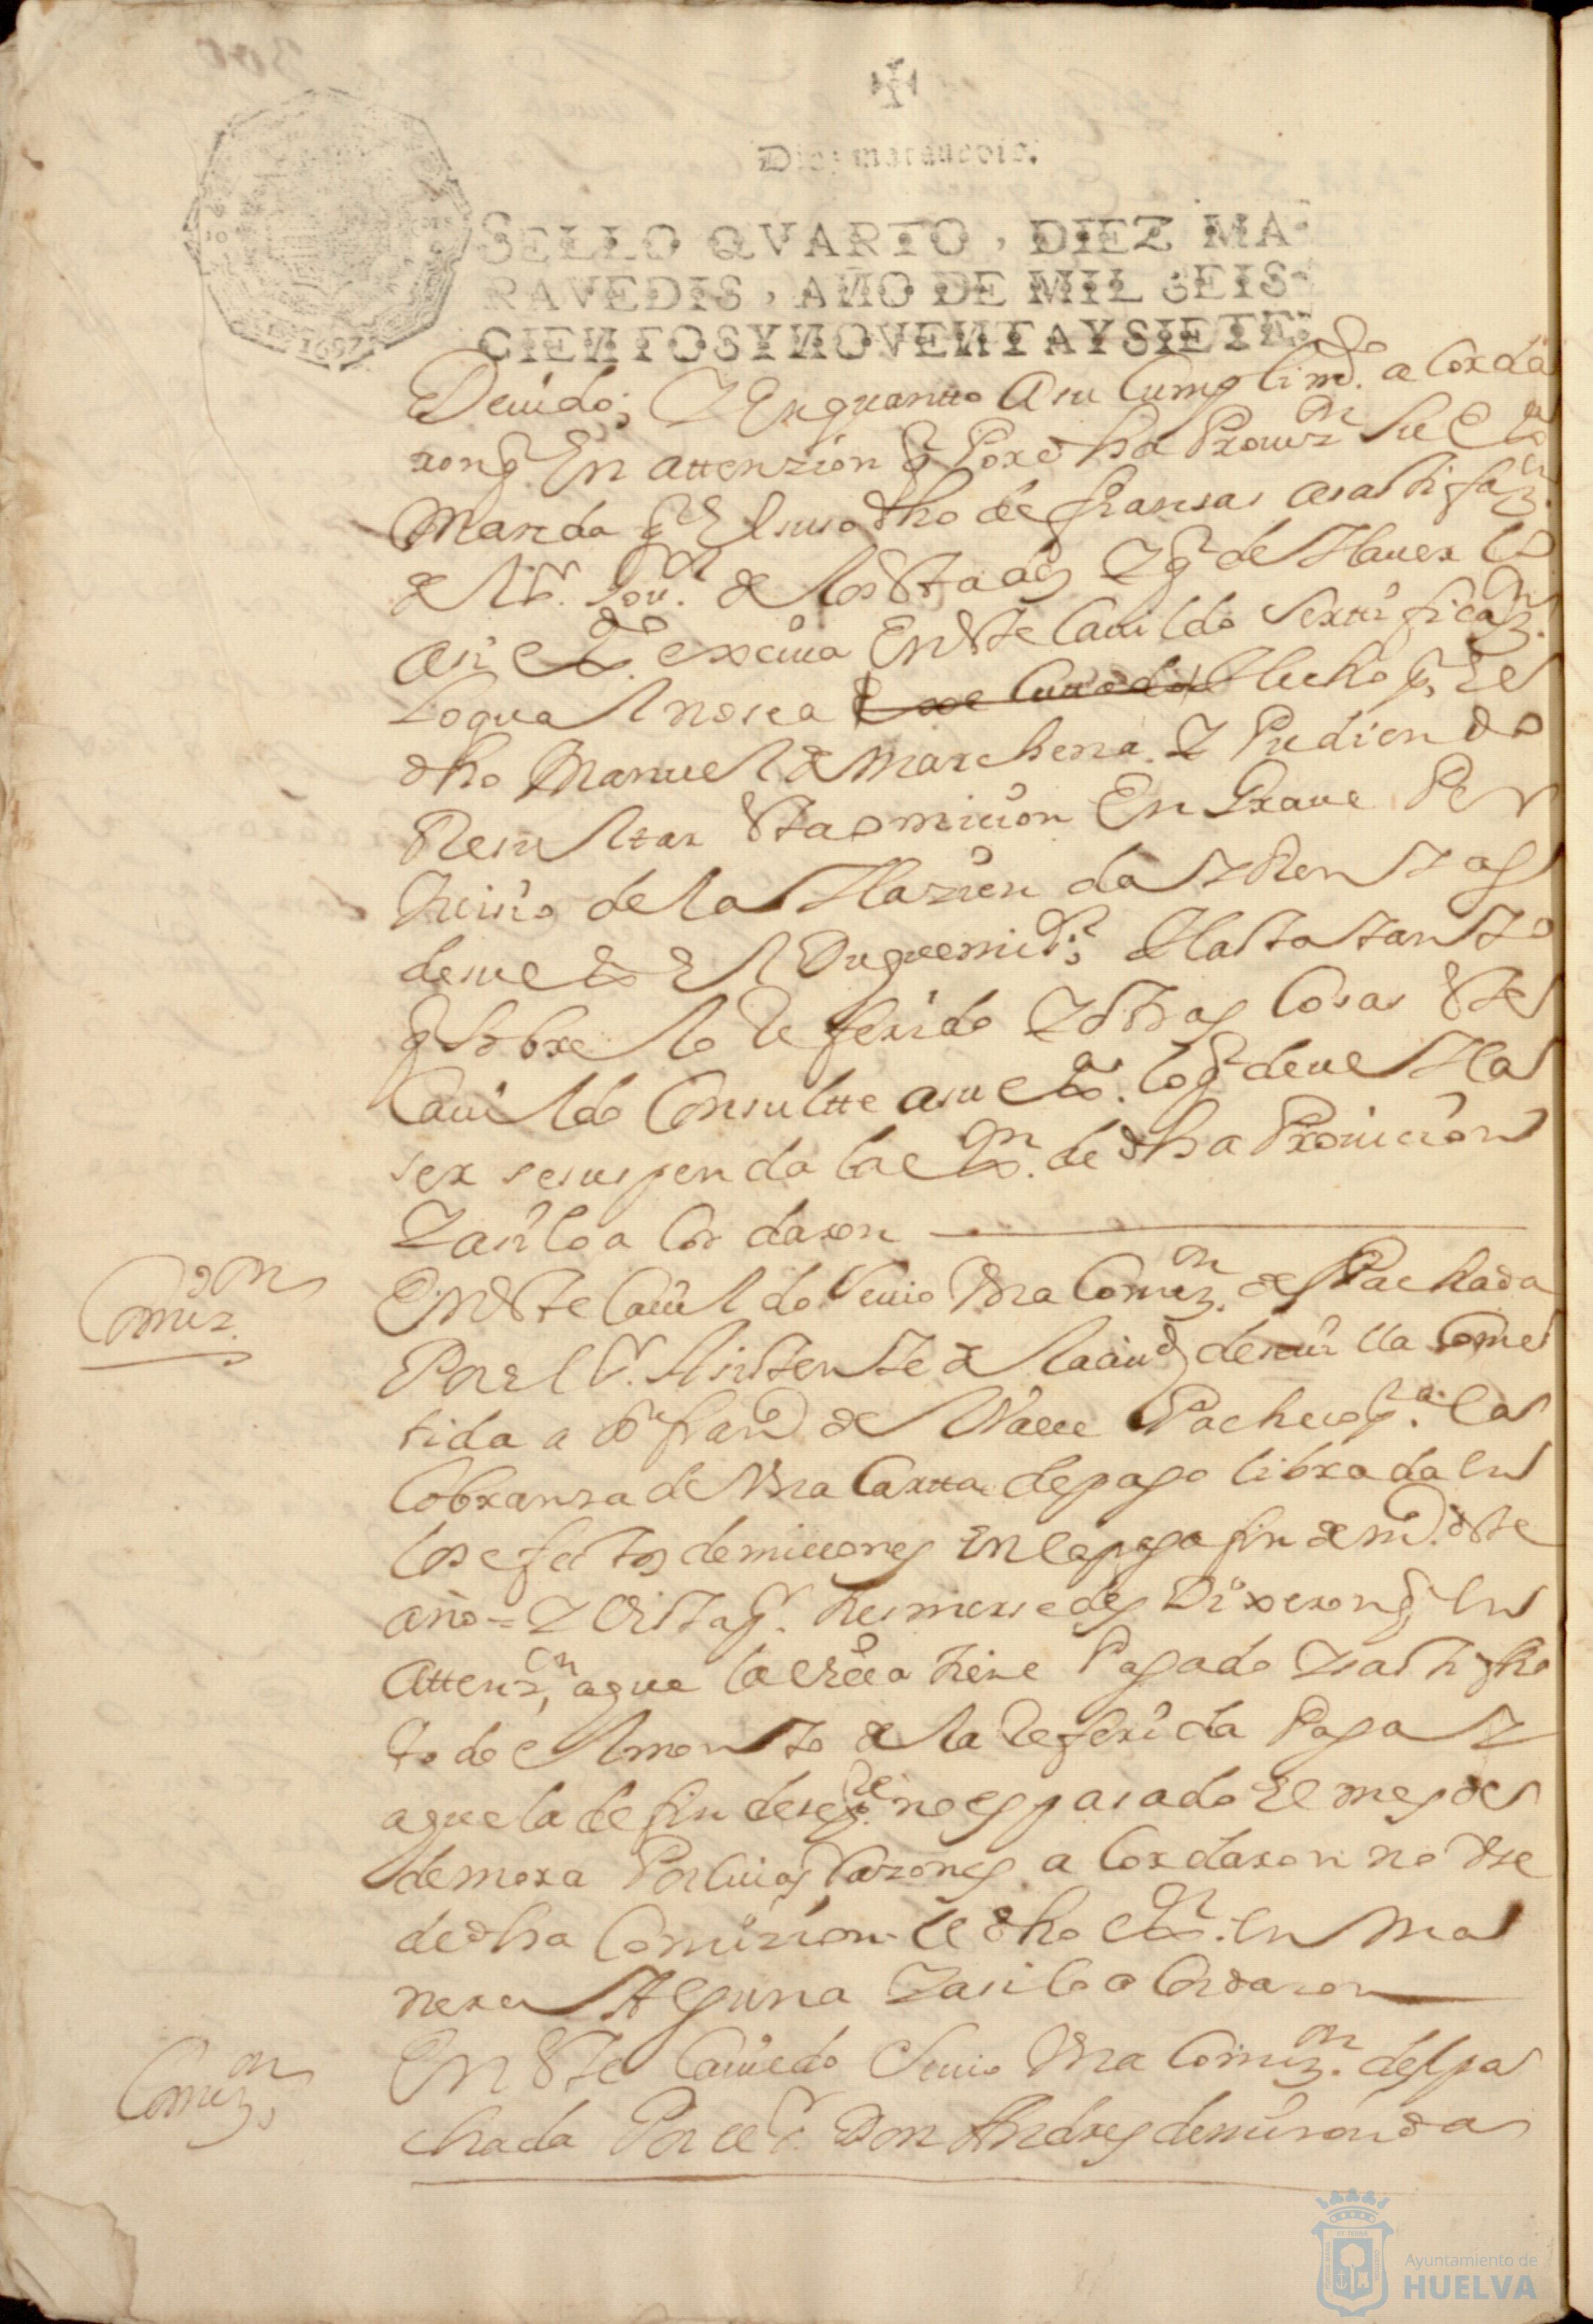 Diez marauedis.
SELLO QVARTO, DIEZ MA-
RAVEDIS, AÑO DE MIL SEIS-
CIENTOS Y NOVENTA Y SIETE.
1697
Deuido; Y En quantto a su Cumplimto. a Corda
ron q En attenzion q Por dha Prouizn Su Exa
Manda q El susodho de fiansas a satisfazn
de el Sr. Gour. de los Stados Y q de Hauer lo
asi exdo. exciua En Ste Cauildo Sertificazn.
Lo qual no sea Hecho pr. el
dho Manuel de Marchena. Y Pudiendo
Resultar Sta omicion En Graue Per
Juicio de la Hazienda Y Rentas
de su exa El Duque mi Sr; Hasta tanto
q Sobre lo Referido Y Otras Cosas Ste
Cauildo Consultte a su exa. lo q deue Ha
ser se suspenda la exn. de dha Prouicion
Y asi lo a Cordaron
Comizn
En Ste Cauildo Se uio Vna Comizn. despachada
Por el Sr. Asistente de la ciud de seuilla Come
tida a Dn franco de Valle Pacheco pa. la
Cobransa de Vna Cartta de pago librada en
los efectos de millones en la paga fin de mo. de Ste
año = Y Vista pr. sus mersedes Dixeron q en
Attenzn, a que la Villa tiene Pagado Y satisfho
todo el monto de la Referida Paga Y
a que la de fin de sepre. no es pasado El mes de
demora Por Cuias Razones a Cordaron no Vse
de dha Comizion el dho exor. en ma
nera Alguna Y asi lo a Cordaron
Comizn
En Ste Cauildo Se uio Vna Comizn. despa
chada Por el Sr. Don Andres de miranda
Ayuntamiento de
HUELVA